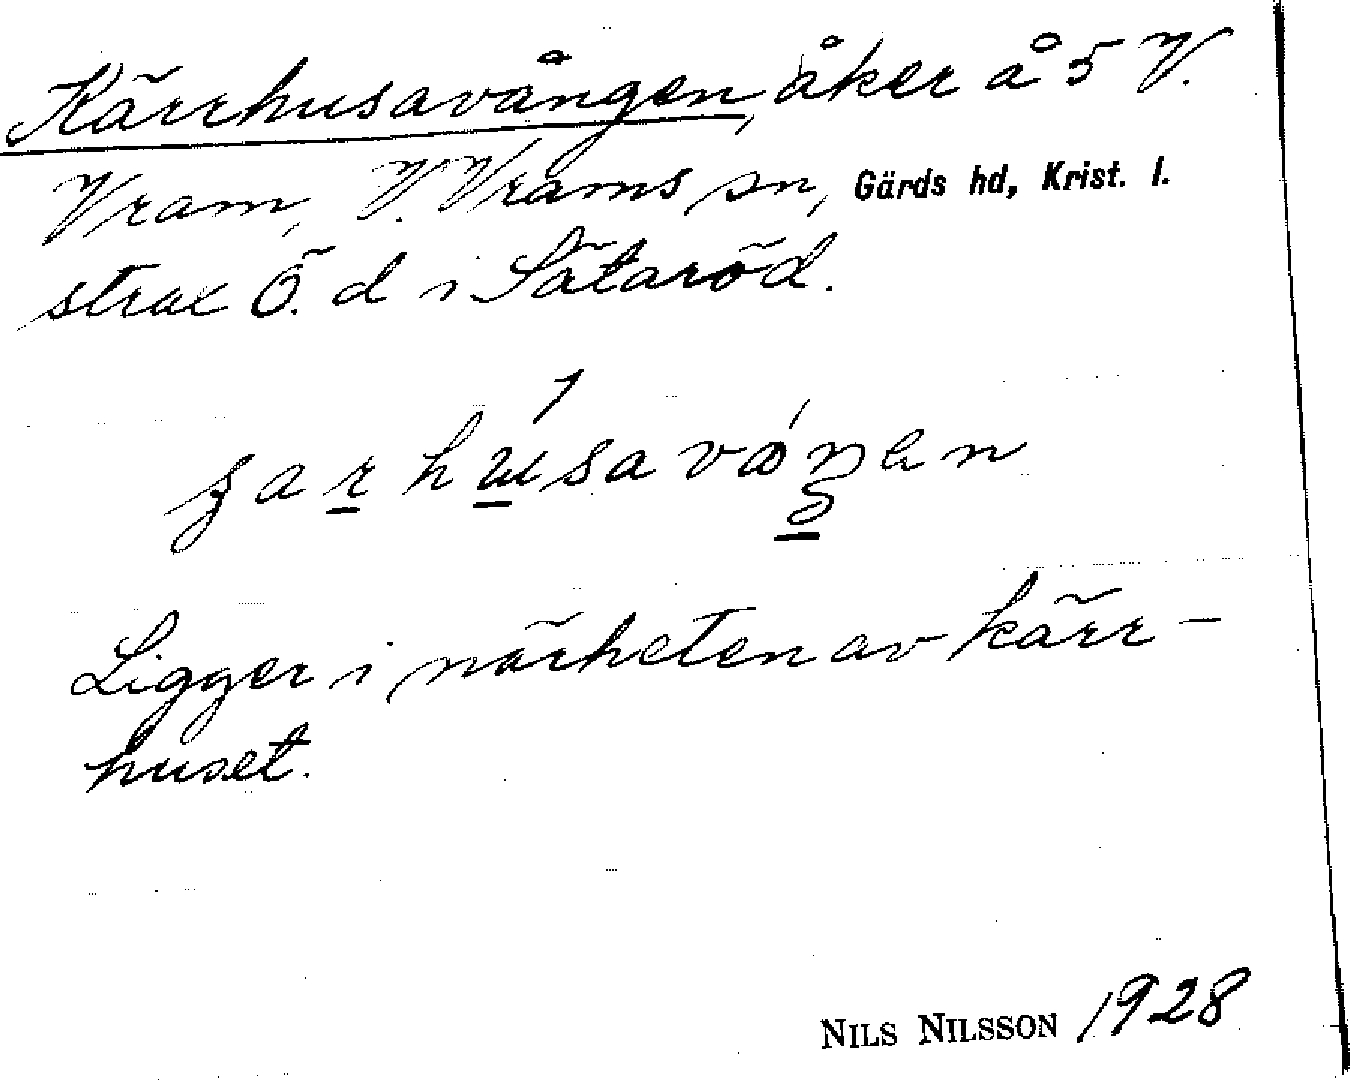 Kärrhusavången, åker å 5 V.
Vram, V. Vrams sn, Gärds hd, Krist. l.
strax Ö. d i Sätaröd.
Ligger i närheten av kärr-
huset.
NILS NILSSON 1928